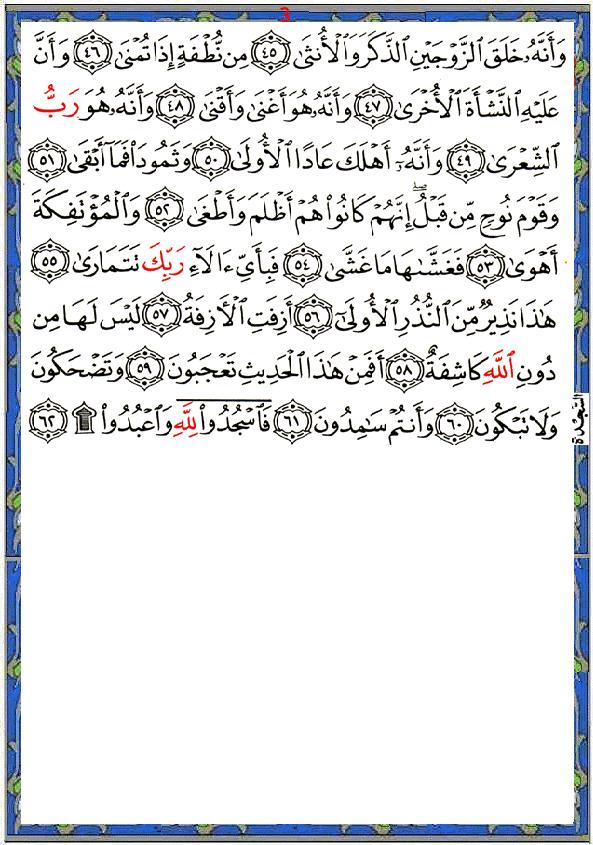 3
وَأَنَّهُۥ خَلَقَ ٱلزَّوۡجَيۡنِ ٱلذَّكَرَ وَٱلۡأُنثَىٰ ٤٥ مِن نُّطۡفَةٍ إِذَا تُمۡنَىٰ ٤٦ وَأَنَّ
عَلَيۡهِ ٱلنَّشۡأَةَ ٱلۡأُخۡرَىٰ ٤٧ وَأَنَّهُۥ هُوَ أَغۡنَىٰ وَأَقۡنَىٰ ٤٨ وَأَنَّهُۥ هُوَ رَبُّ
ٱلشِّعۡرَىٰ ٤٩ وَأَنَّهُۥٓ أَهۡلَكَ عَادًا ٱلۡأُولَىٰ ٥٠ وَثَمُودَاْ فَمَآ أَبۡقَىٰ ٥١
وَقَوۡمَ نُوحٖ مِّن قَبۡلُۖ إِنَّهُمۡ كَانُواْ هُمۡ أَظۡلَمَ وَأَطۡغَىٰ ٥٢ وَٱلۡمُؤۡتَفِكَةَ
أَهۡوَىٰ ٥٣ فَغَشَّىٰهَا مَا غَشَّىٰ ٥٤ فَبِأَيِّ ءَالَآءِ رَبِّكَ تَتَمَارَىٰ ٥٥
هَٰذَا نَذِيرٞ مِّنَ ٱلنُّذُرِ ٱلۡأُولَىٰٓ ٥٦ أَزِفَتِ ٱلۡأٓزِفَةُ ٥٧ لَيۡسَ لَهَا مِن
دُونِ ٱللَّهِ كَاشِفَةٌ ٥٨ أَفَمِنۡ هَٰذَا ٱلۡحَدِيثِ تَعۡجَبُونَ ٥٩ وَتَضۡحَكُونَ
وَلَا تَبۡكُونَ ٦٠ وَأَنتُمۡ سَٰمِدُونَ ٦١ فَٱسۡجُدُواْ لِلَّهِ وَٱعۡبُدُواْ ۩ ٦٢
السَّجْدَة